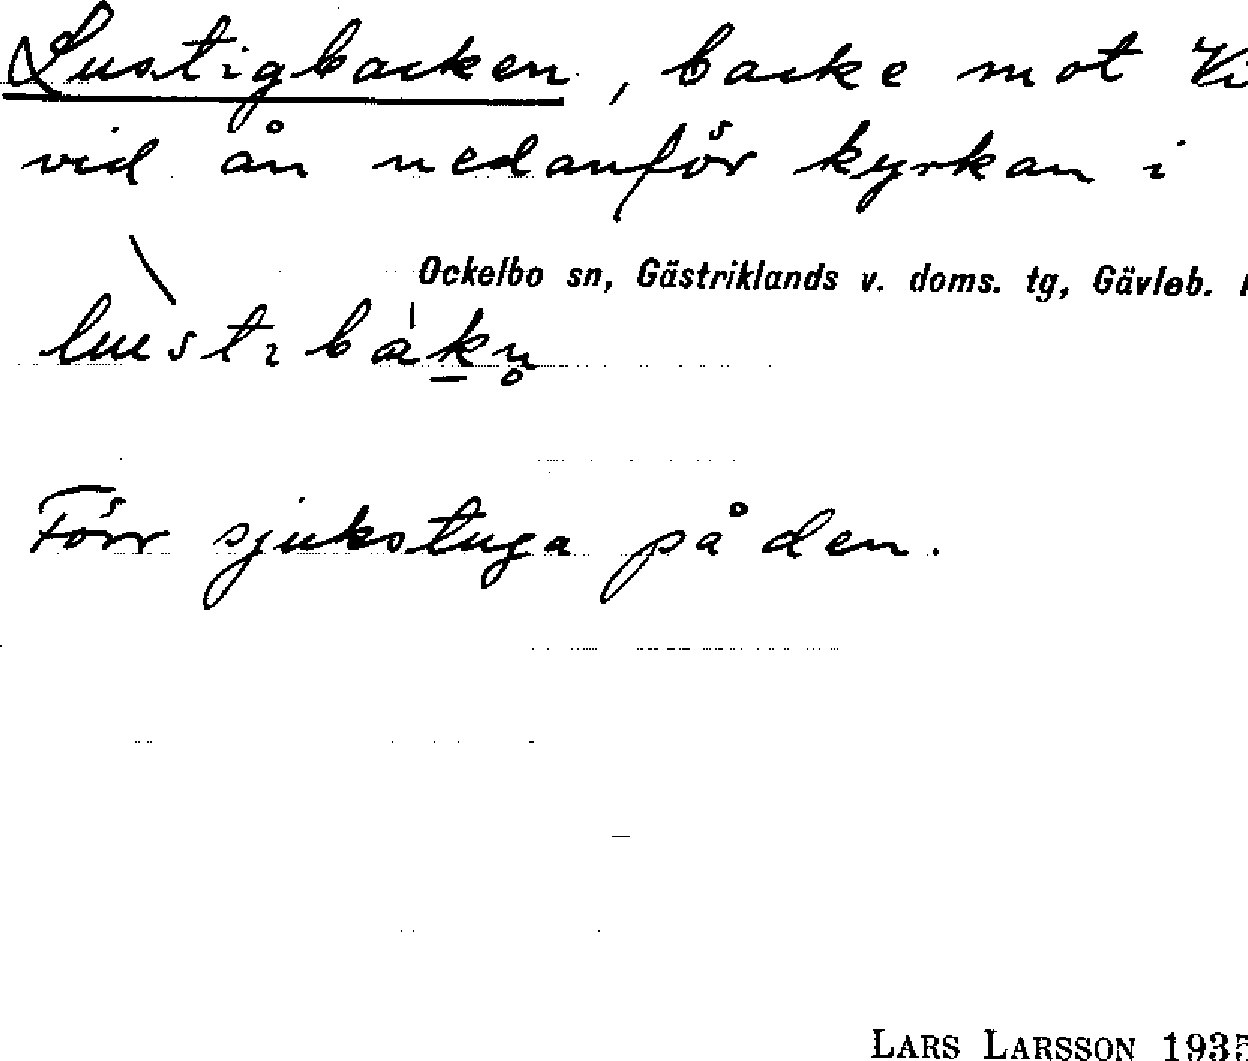 Lustigbacken, backe mot
vid ån nedanför kyrkan i
Ockelbo sn, Gästriklands v. doms. tg, Gävleb.
Förr sjukstuga på den.
LARS LARSSON 1935